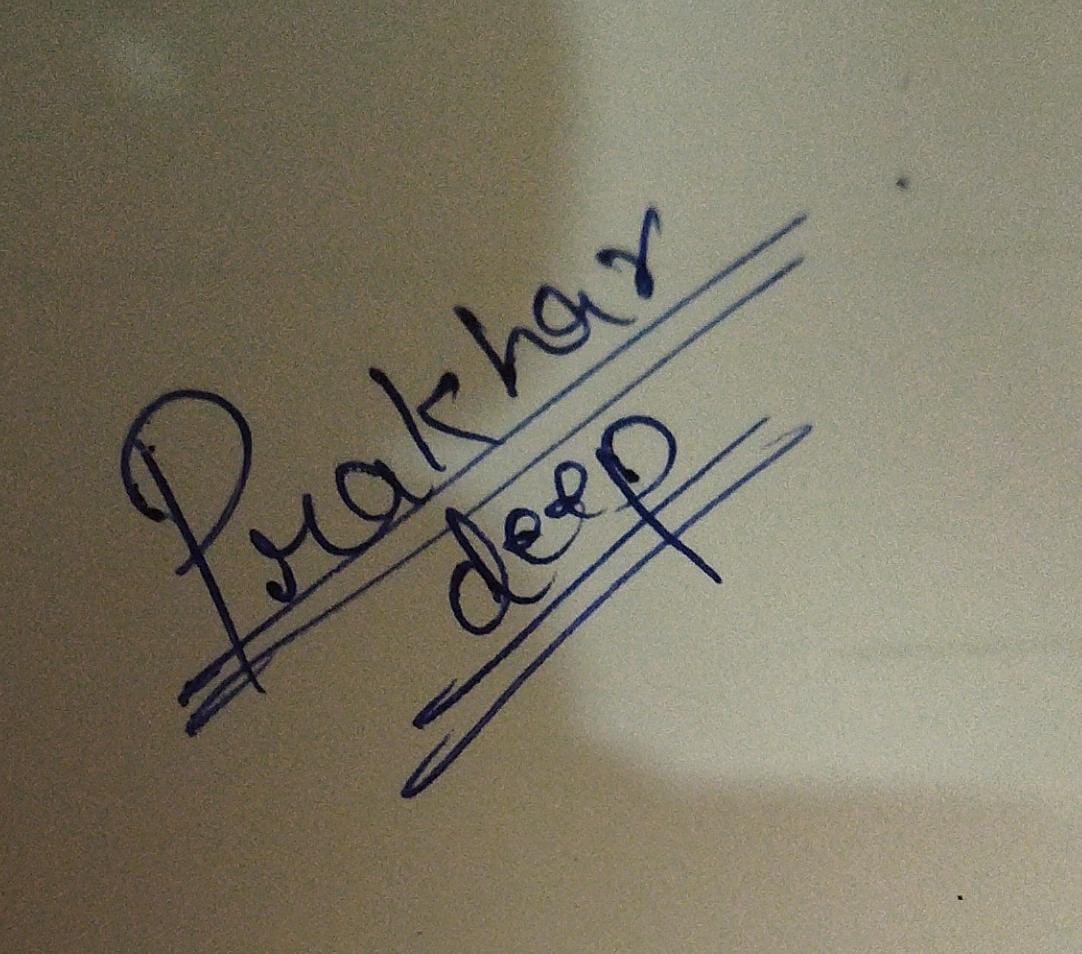 Prakhar
deep